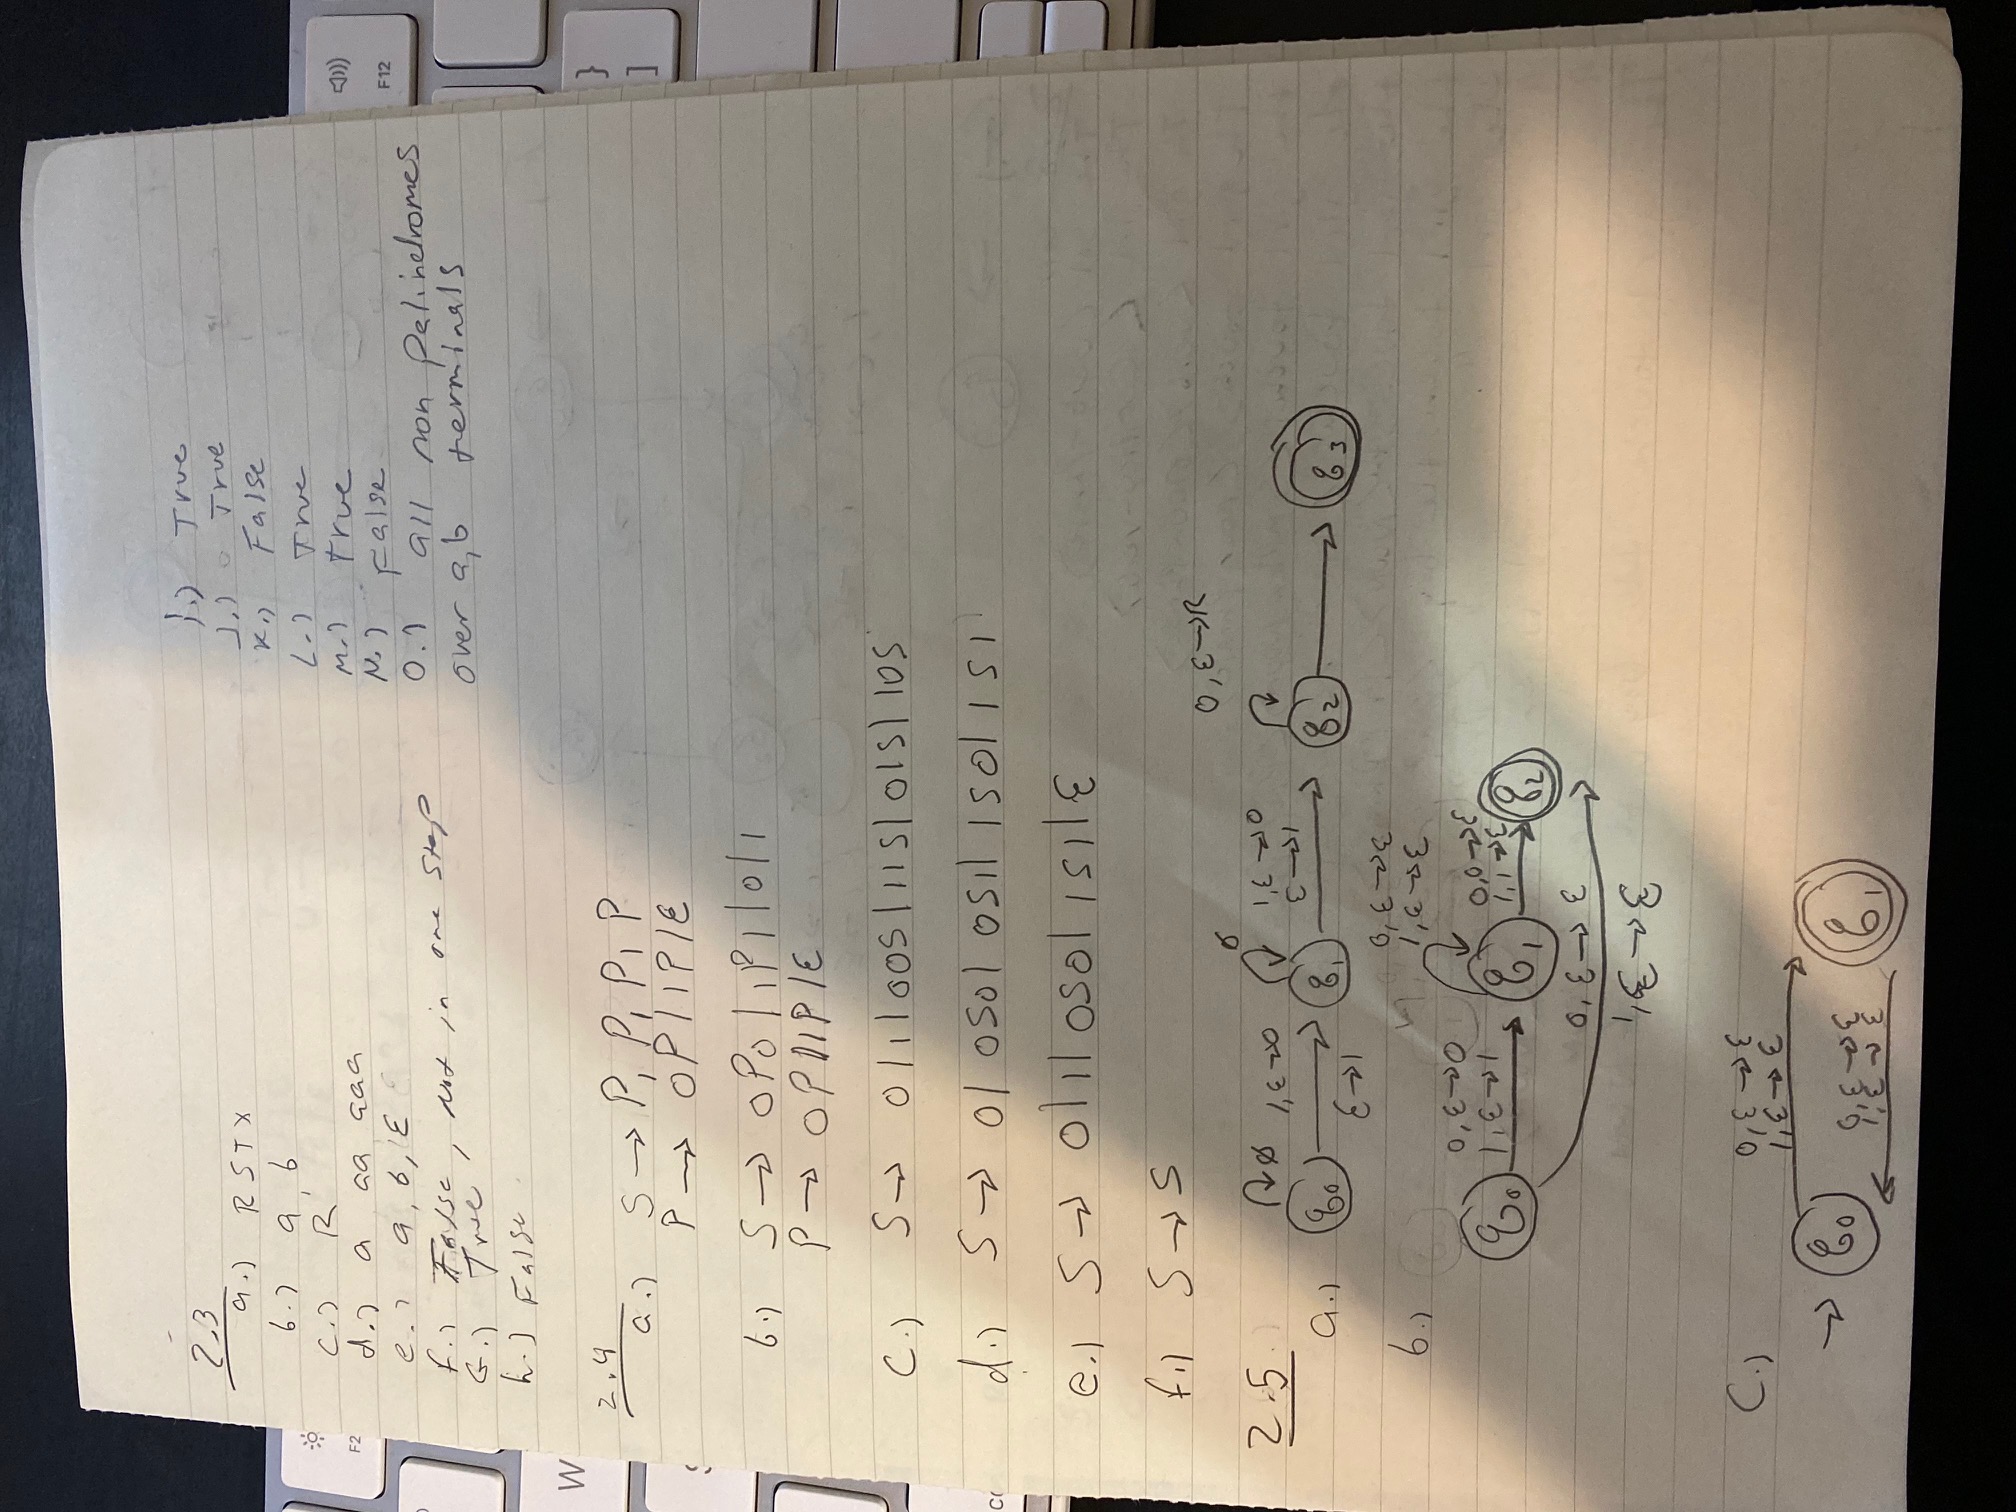 2.3
a.) R S T X
b.) a, b
c.) R
d.) a aa aaa
e.) a, b, ε
f.) False, Not in one step
G.) True
h.) False
i.) True
J.) True
K.) False
L.) True
M.) True
N.) False
O.) all non Palindromes
over a,b terminals
2.4
a.) S → P1 P1 P1 P
P → 0P|1P|ε
b.) S → 0P0|1P1|0|1
P → 0P|1P|ε
C.) S → 0|1|00S|11S|01S|10S
d.) S → 0|0S0|0S1|1S0|1S1
e.) S → 0|1|0S0|1S1|ε
f.) S → S
2.5
0, ε→R
a.) q0 q1 q2 q3
b.)
0, ε→ε
1, ε→ε
0, ε→0
1, ε→1
0,0→ε
1,1→ε
q0 q1 q2
0, ε→ε
1, ε→ε
C.)
0, ε→ε
1, ε→ε
→ q0 q1
0, ε→ε
1, ε→ε
F2
F12
W
}
]